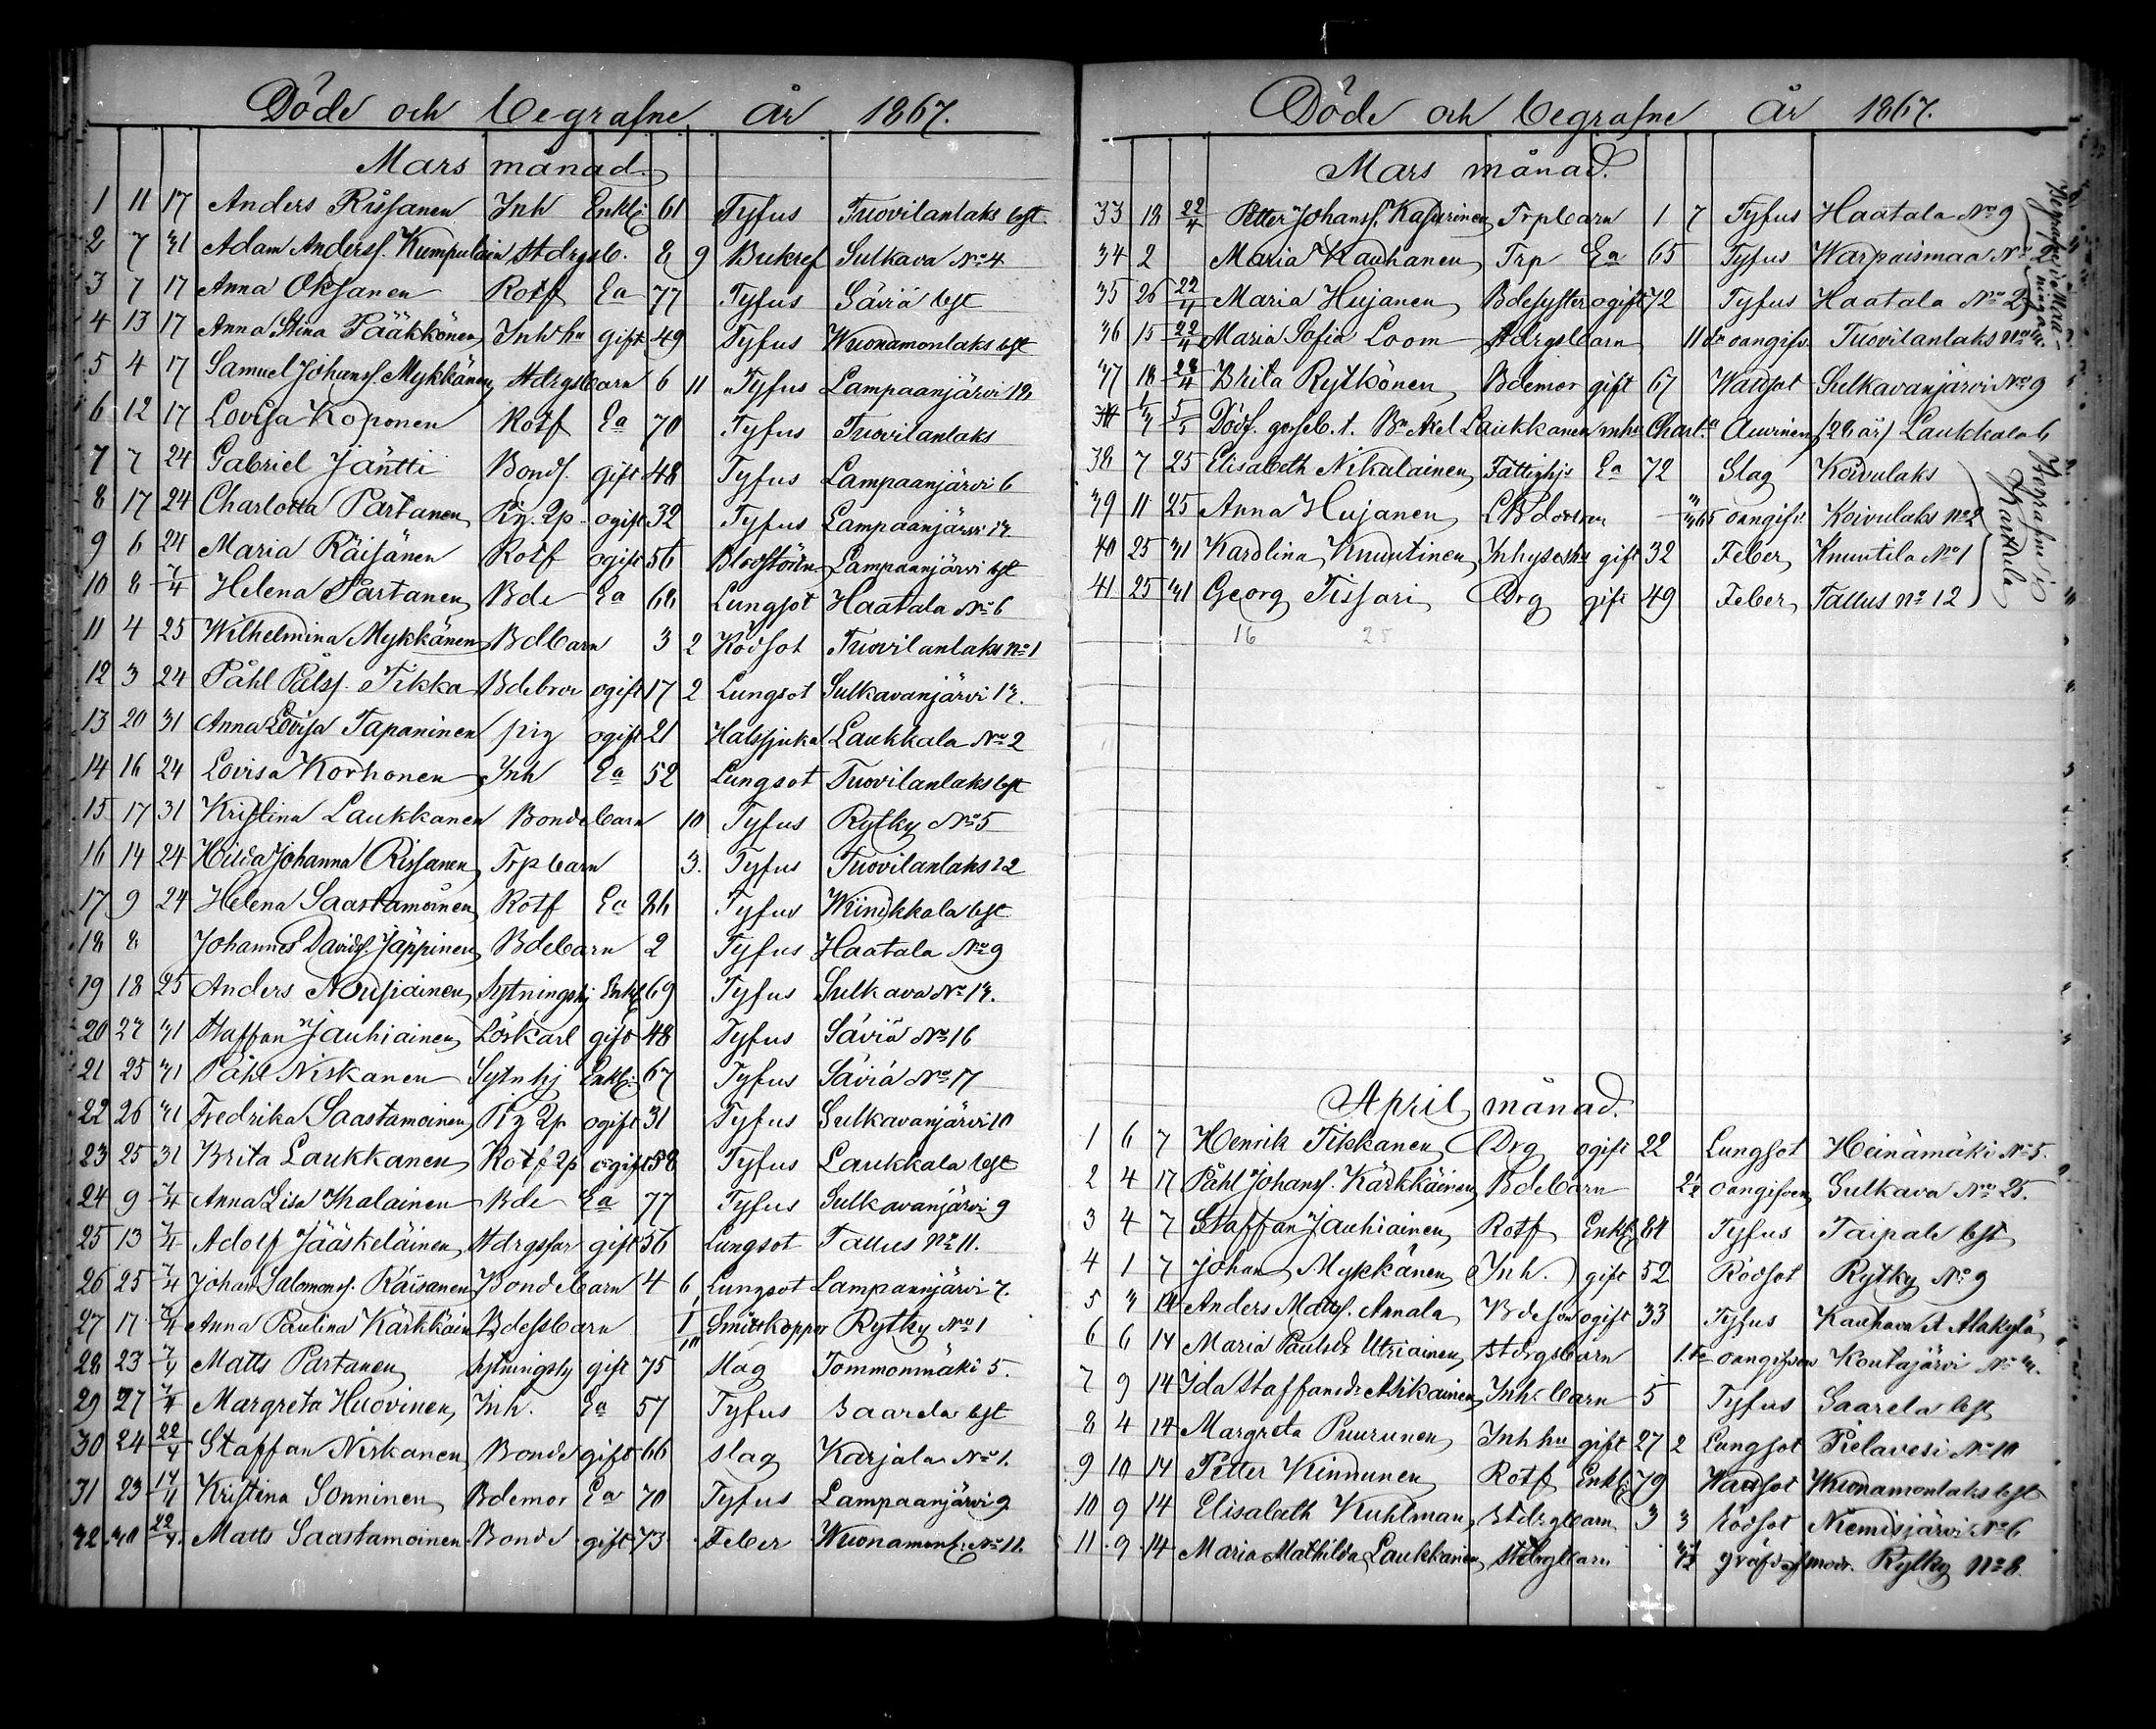 Döde och begrafne år 1867.
Mars månad.
1 11 17 Anders Rissanen Inh Enkl: 61 Tyfus Tuovilanlaks bst
2 7 31 Adam Anderss. Kumpulain Stdrgsb. 8 9 Bukref Sulkava No 4
3 7 17 Anna Oksanen Rotf Ea 77 Tyfus Säviä bst
4 13 17 Anna Stina Pääkkönen Inhhu gift 49 Tyfus Wuonamonlaks bst
5 4 17 Samuel Johanss. Mykkänen Stdrgsbarn 6 11 Tyfus Lampaanjärvi 12
6 12 17 Lovisa Koponen Rotf Ea 70 Tyfus Tuovilanlaks
7 7 24 Gabriel Jäntti Bonds. gift 48 Tyfus Lampaanjärvi 6
8 17 24 Charlotta Partanen Pig. 2p ogift 32 Tyfus Lampaanjärvi 13.
9 6 24 Maria Räisänen Rotf ogift 56 Blodstörtn Lampaanjärvi bst
10 8 7/4 Helena Partanen Bde Ea 68 Lungsot Haatala No 6
11 4 25 Wilhelmina Mykkänen Bdbarn 3 2 Rödsot Tuovilanlaks No 1
12 3 24 Påhl Pålss. Tikka Bdebror ogift 17 2 Lungsot Sulkavanjärvi 13.
13 20 31 Anna Lovisa Tapaninen pig ogift 21 Halssjuka Laukkala No 2
14 16 24 Lovisa Korhonen Inh Ea 52 Lungsot Tuovilanlaks bst
15 17 31 Kristina Laukkanen Bondebarn 10 Tyfus Rytky No 5
16 14 24 Hilda Johanna Rissanen Trpbarn 3. Tyfus Tuovilanlaks 22
17 9 24 Helena Saastamoinen Rotf Ea 86 Tyfus Winikkala bst
18 8 Johannes Davids. Jäppinen Bdebarn 2 Tyfus Haatala No 9
19 18 25 Anders Nousiainen Sytningshj Enkl 69 Tyfus Sulkava No 13.
20 23 31 Staffan Jauhiainen Löskarl gift 48 Tyfus Säviä No 16
21 25 31 Påhl Niskanen Sytnhj Enkl: 67 Tyfus Säviä No 17
22 26 31 Fredrika Saastamoinen Pig 2p ogift 31 Tyfus Sulkavanjärvi 10
23 25 31 Brita Laukkanen Rotf 2p ogift 58 Tyfus Laukkala bst
24 9 7/4 Anna Lisa Kralainen Bde Ea 77 Tyfus Sulkavanjärvi 9
25 13 7/4 Adolf Jääskeläinen Stdrgsfar gift 56 Lungsot Tallus No 11.
26 25 7/4 Johan Salomonss. Räisänen Bondebarn 4 6 Lungsot Lampaanjärvi 7.
27 17 7/4 Anna Paulina Kärkkäin Bdessbarn 1/m Smittkoppor Rytky No 1
28 23 7/4 Matts Partanen Sytningshj gift 75 Slag Tommonmäki 5.
29 27 7/4 Margreta Huovinen Inh. Ea 57 Tyfus Saarela bst
30 24 22/4 Staffan Niskanen Bonde gift 66 slag Karjala No 1.
31 23 14/4 Kristina Sonninen Bdemor Ea 70 Tyfus Lampaanjärvi 9
32 30 22/4 Matts Saastamoinen Bonde gift 73 Feber Wuonamonl: No 11.
Döde och begrafne år 1867.
Mars månad.
33 18 22/4 Petter Johanss. Kasurinen Trpbarn 1 7 Tyfus Haatala No 9
34 2 Maria Kauhanen Trp Ea 65 Tyfus Warpaismaa No
35 26 22/4 Maria Hujanen Bdesyster ogift 72 Tyfus Haatala No 2
36 15 22/4 Maria Sofia Loom Stdrgsbarn 11 dr oangifv. Tuovilanlaks
37 18 28/4 Brita Rytkönen Bdemor gift 67 Wattsot Sulkavanjärvi No 9
1/3 5/5 Dödf. gosseb. t. Bn Axel Laukkanen mhu Charl:a Auvinen (28 år) Laukkala 6
38 7 25 Elisabeth Nikalainen Fattighjs Ea 72 Slag Koivulaks
39 11 25 Anna Hujanen oangifv: Koivulaks No 2
40 25 31 Karolina Knuutinen Inhyseshu gift 32 Feber Knuutila No 1
41 25 31 Georg Tissari Drg gift 49 Feber Tallus No 12
Begrafne i Karttula
16 25
April månad.
1 6 7 Henrik Tikkanen Drg ogift 22 Lungsot Heinämäki No 5.
2 4 17 Påhl Johanss. Kärkkäinen Bdebarn oangifven Sulkava No 25.
3 4 7 Staffan Jauhiainen Rotf Enkl 84 Tyfus Taipale bst
4 1 7 Johan Mykkänen Inh. gift 52 Rödsot Rytky No 9
5 3 14 Anders Matts. Annala Bdeson ogift 33 Tyfus Kauhava Alakylä
6 6 14 Maria Paulsdr Utriainen Stdrgsbarn oangifven Koutajärvi No 3.
7 9 14 Ida Staffansdr Asikainen Inh. barn 5 Tyfus Saarela bst
8 4 14 Margreta Puurunen Inhhu gift 27 2 Lungsot Pielavesi No 10
9 10 14 Petter Kinnunen Rotf Enkl: 79 Wattsot Wuonamonlaks bst
10 9 14 Elisabeth Kuhlman Stdrgbarn 3 3 Rödsot Niemisjärvi No 6
11 9 14 Maria Mathilda Laukkanen Stdrgbarn qväfd af modr. Rytky No 8.